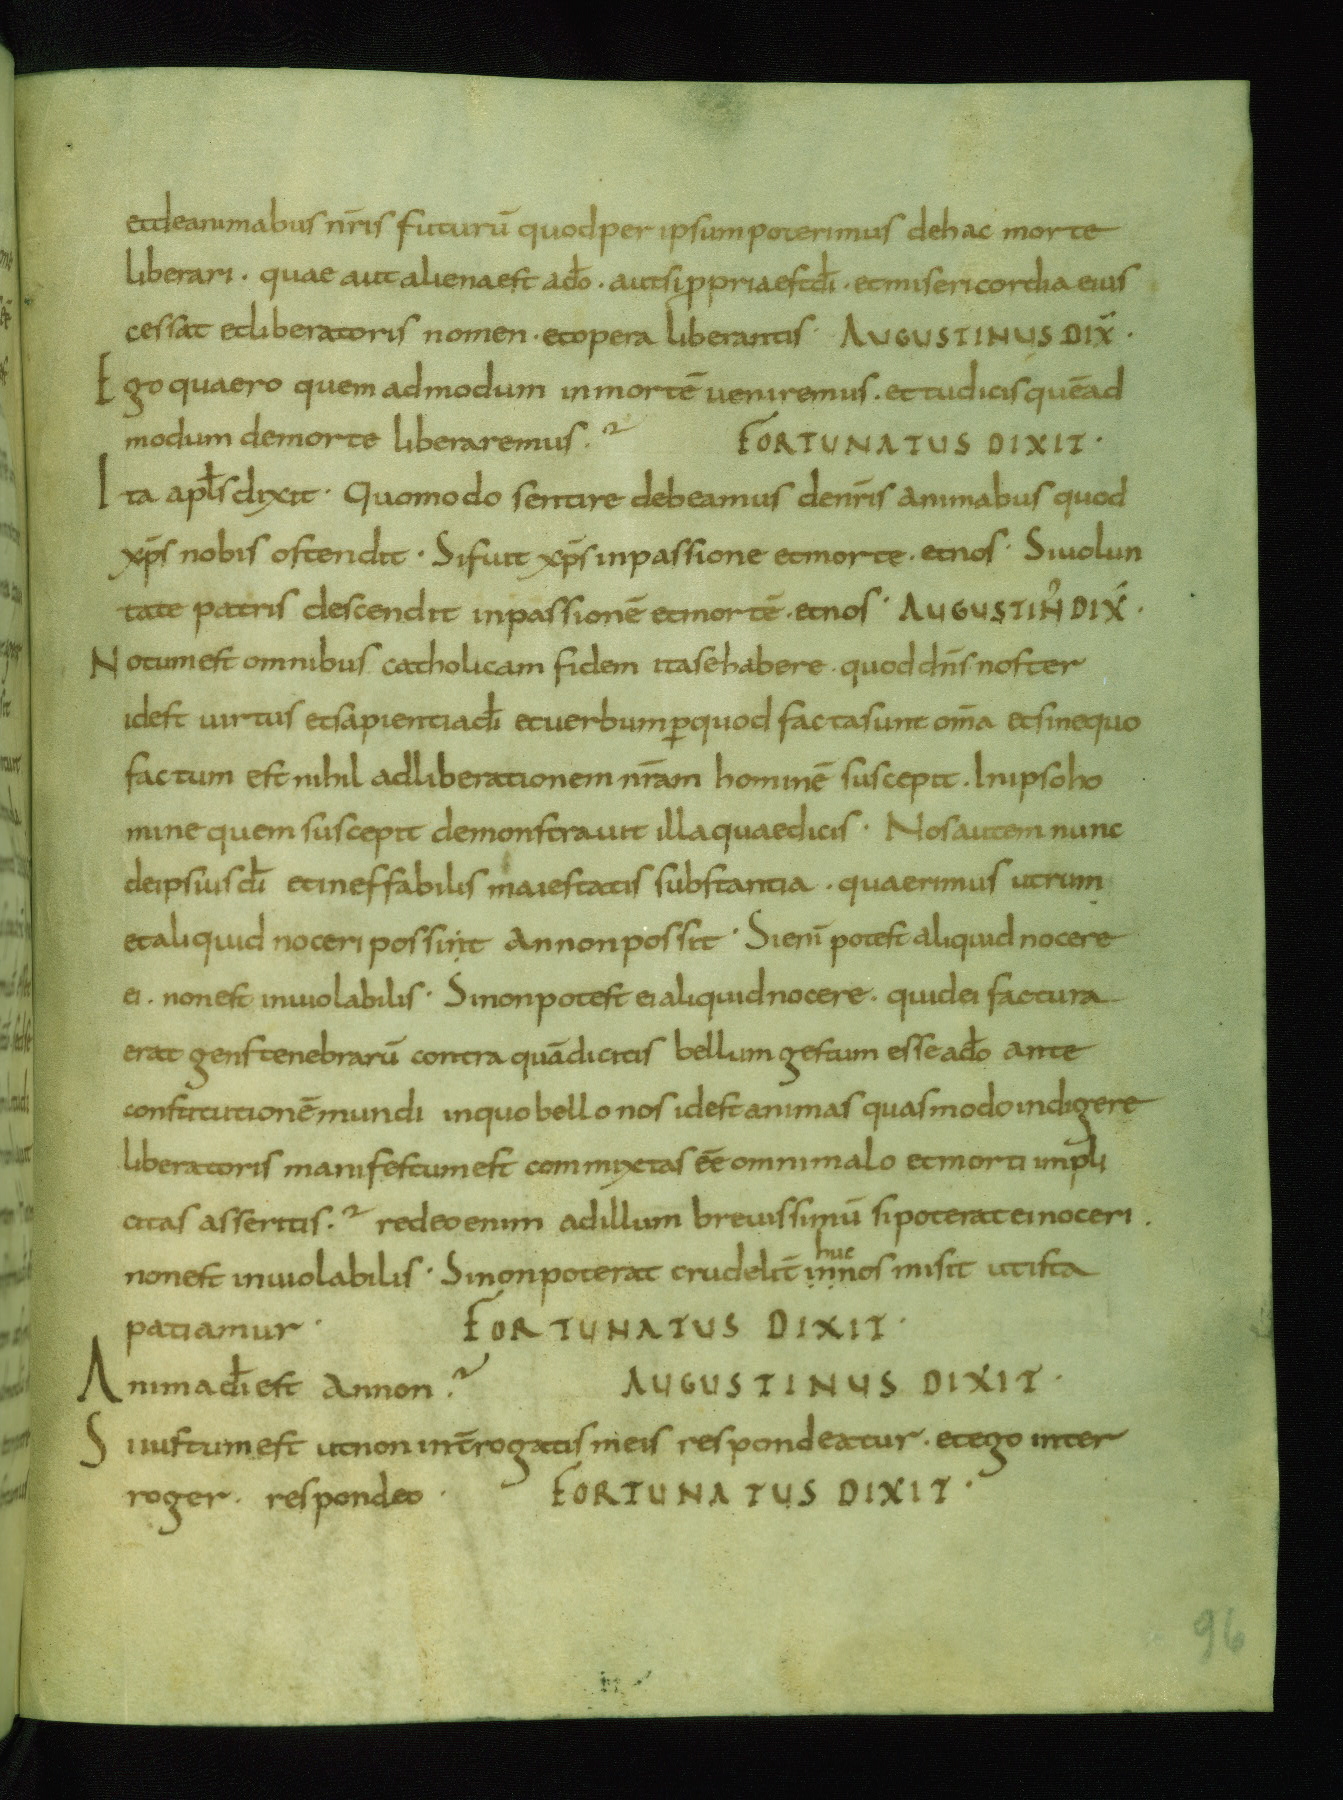 etdeanimabus nr̄is futurū quodper ipsumpoterimus dehac morte
liberari · quae aut alienaest ado̅ · autsi propriaestdi̅ · etmisericordia eius
cessat etliberatoris nomen · etopera liberantis · AUGUSTINUS DIX̄ ·
Ego quaero quem admodum inmortē ueniremus · et tudicis quēad
modum demorte liberaremus ·? FORTUNATUS DIXIT ·
Ita apl̄s dixit · Quomodo sentire debeamus denr̄is animabus quod
xp̄s nobis ostendit · Sifuit xp̄s inpassione etmorte · etnos · Siuolun
tate patris descendit inpassionē etmortē · etnos · AUGUSTIN̄ DIX̄ ·
Notumest omnibus catholicam fidem itasehabere · quod dn̄s noster
idest uirtus etsapientiadi̅ etuerbum ꝑquod factasunt om̄a etsinequo
factum est nihil adliberationem nr̄am hominē suscepit · Inipsoho
mine quem suscepit demonstrauit illaquaedicis · Nosautem nunc
deipsiusdi̅ etineffabilis maiestatis substantia · quaerimus utrum
etaliquid noceri possint annonpossit · Sieni̅ potest aliquid nocere
ei · nonest inuiolabilis · Sinonpotest eialiquidnocere · quidei factura
erat gens tenebrarū contra quādicitis bellum gestum esse ado̅ ante
constitutionēmundi inquobello nos idest animas quasmodoindigere
liberatoris manifestumest commixtas ēē omnimalo etmorti impli
citas asseritis ·? redeoenim adillum breuissimū sipoterat einoceri ·
nonest inuiolabilis · Sinonpoterat crudelit̄ innos hue misit utista
patiamur · FORTUNATUS DIXIT ·
Animadi̅ est annon ·? AUGUSTINUS DIXIT ·
Siiustumest utnon int̄rogatis meis respondeatur · etego inter
roger · respondeo · FORTUNATUS DIXIT ·
96